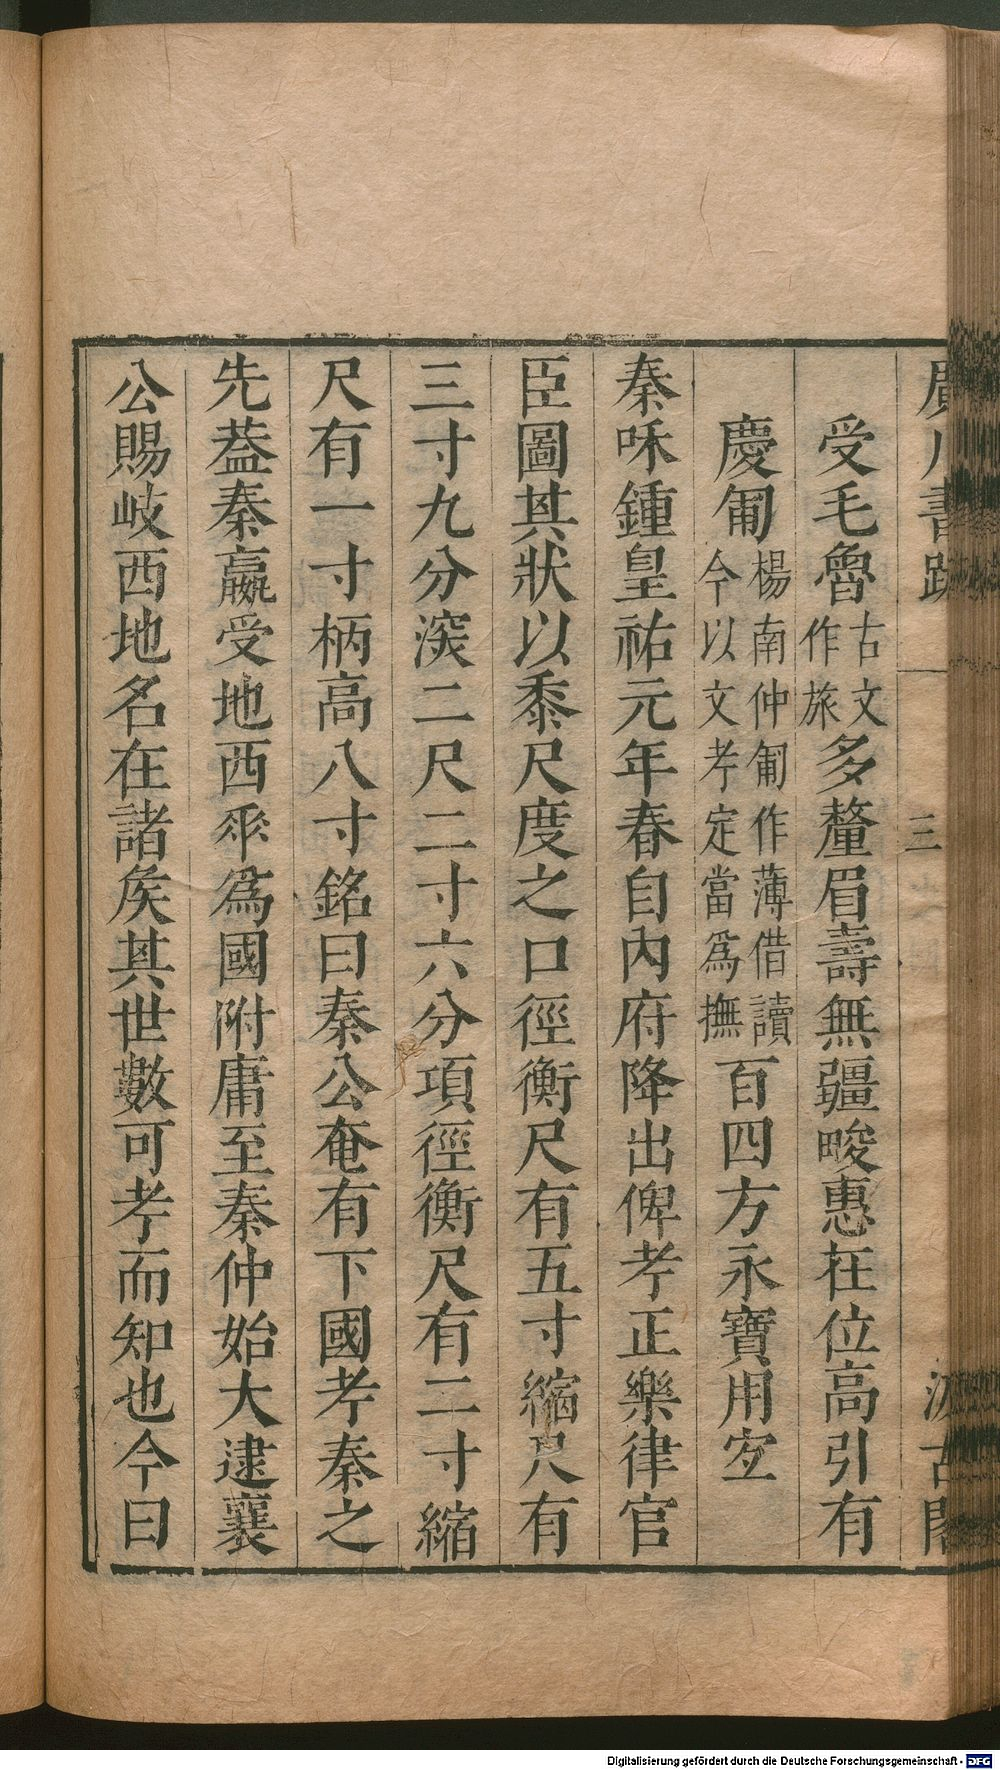 廣川書跋 三 汲古閣
受毛魯古文作旅多釐眉壽無疆畯惠在位高引有
慶匍楊南仲匍作薄借讀今以文考定當爲撫百四方永寶用宜
秦咊鍾皇祐元年春自內府降出俾考正樂律官
臣圖其狀以黍尺度之口徑衡尺有五寸縮尺有
三寸九分深二尺二寸六分項徑衡尺有二寸縮
尺有一寸柄高八寸銘曰秦公奄有下國考秦之
先葢秦嬴受地西𠂹爲國附庸至秦仲始大逮襄
公賜岐西地名在諸矦其世數可考而知也今曰
Digitalisierung gefördert durch die Deutsche Forschungsgemeinschaft - DFG